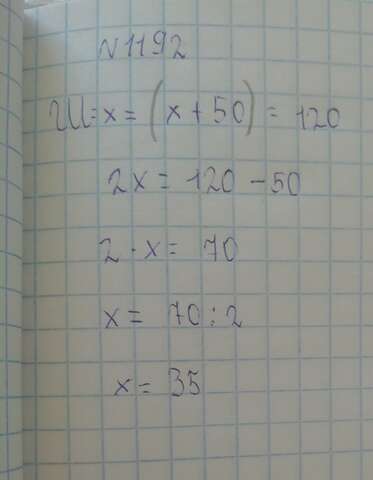 №1192
Ш=x=(x+50)=120
2x=120-50
2·x=70
x=70:2
x=35